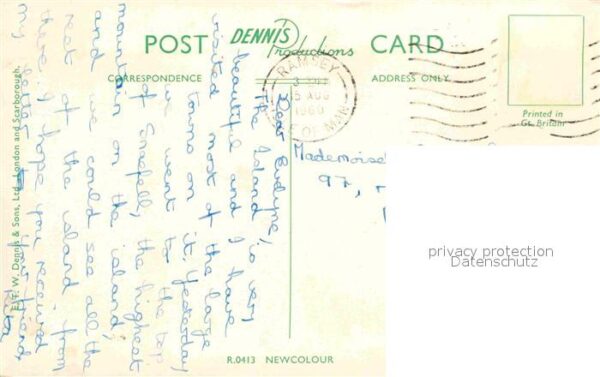 POST DENNIS Productions CARD
CORRESPONDENCE
ADDRESS ONLY
RAMSEY
5 AUG
1960
ISLE OF MAN
Printed in
Gt. Britain
Dear Evelyne,
The Island is very
beautiful and I have
visited most of the large
towns on it. Yesterday
we went to the top
of Snaefell, the highest
mountain on the island,
and we could see all the
rest of the island from
there. I hope you received
my letter.
Mademoise
97,
privacy protection
Datenschutz
E.T.W. Dennis & Sons, Ltd., London and Scarborough.
R.0413 NEWCOLOUR